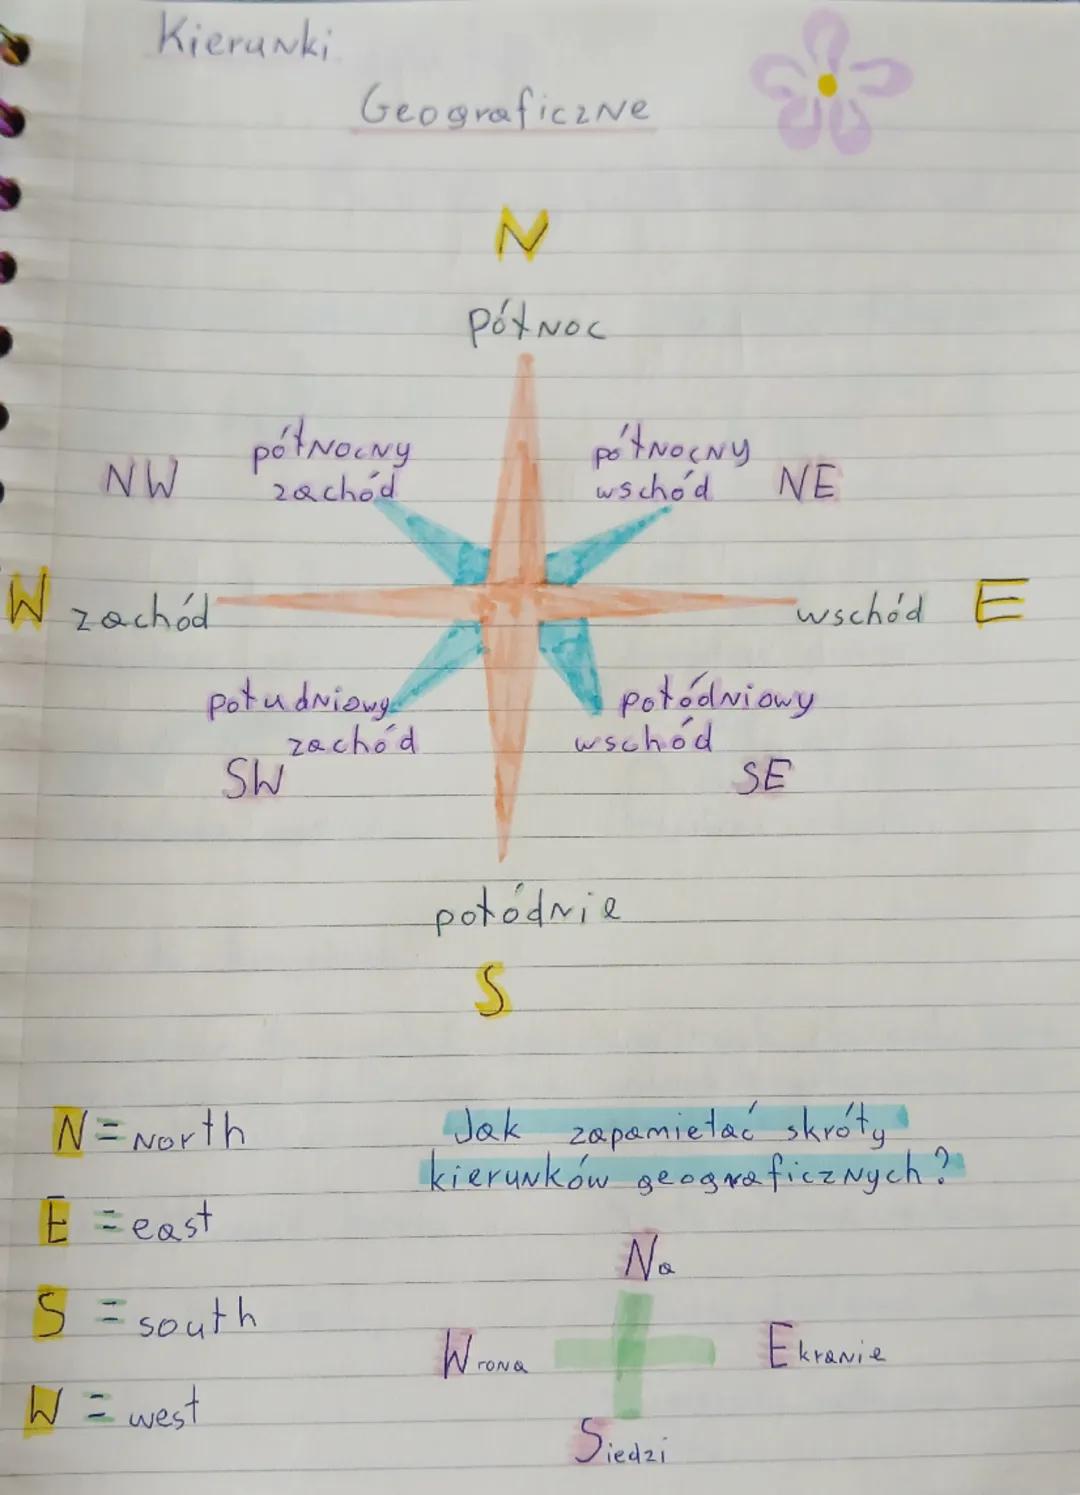 Kierunki
Geograficzne
N
północ
północny
zachód
NW
północny
wschód
NE
W
zachód
wschód
E
południowy
zachód
SW
połódniowy
wschód
SE
połódnie
S
N = North
E = east
S = south
W = west
Jak zapamietać skróty
kierunków geograficznych?
Na
Wrona
Ekranie
Siedzi